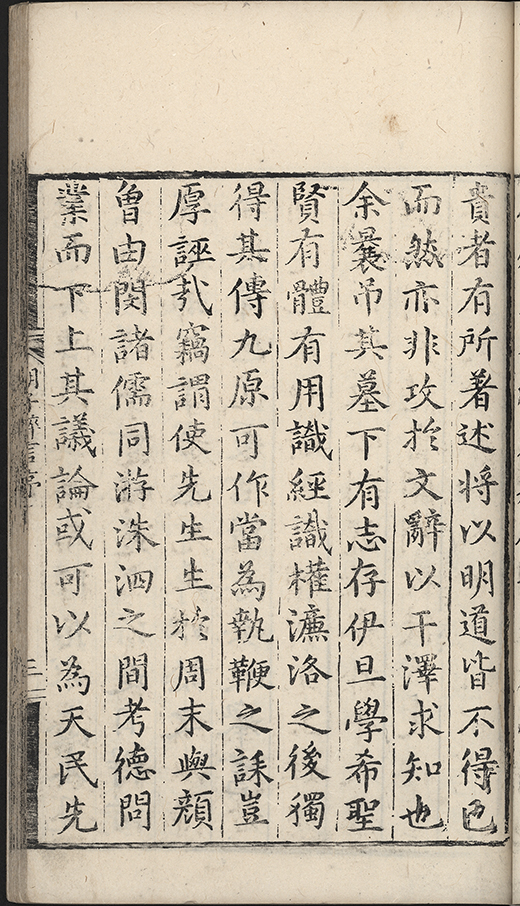 貴者有所著述將以明道皆不得已
而然亦非攻扵文辭以干澤求知也
余曩吊其墓下有志存伊旦學希聖
賢有體有用識經識權濂洛之後獨
得其傳九原可作當為執鞭之誄豈
厚誣㢤竊謂使先生生扵周末與顔
曾由閔諸儒同游洙泗之間考德問
業而下上其議論或可以為天民先
序
三